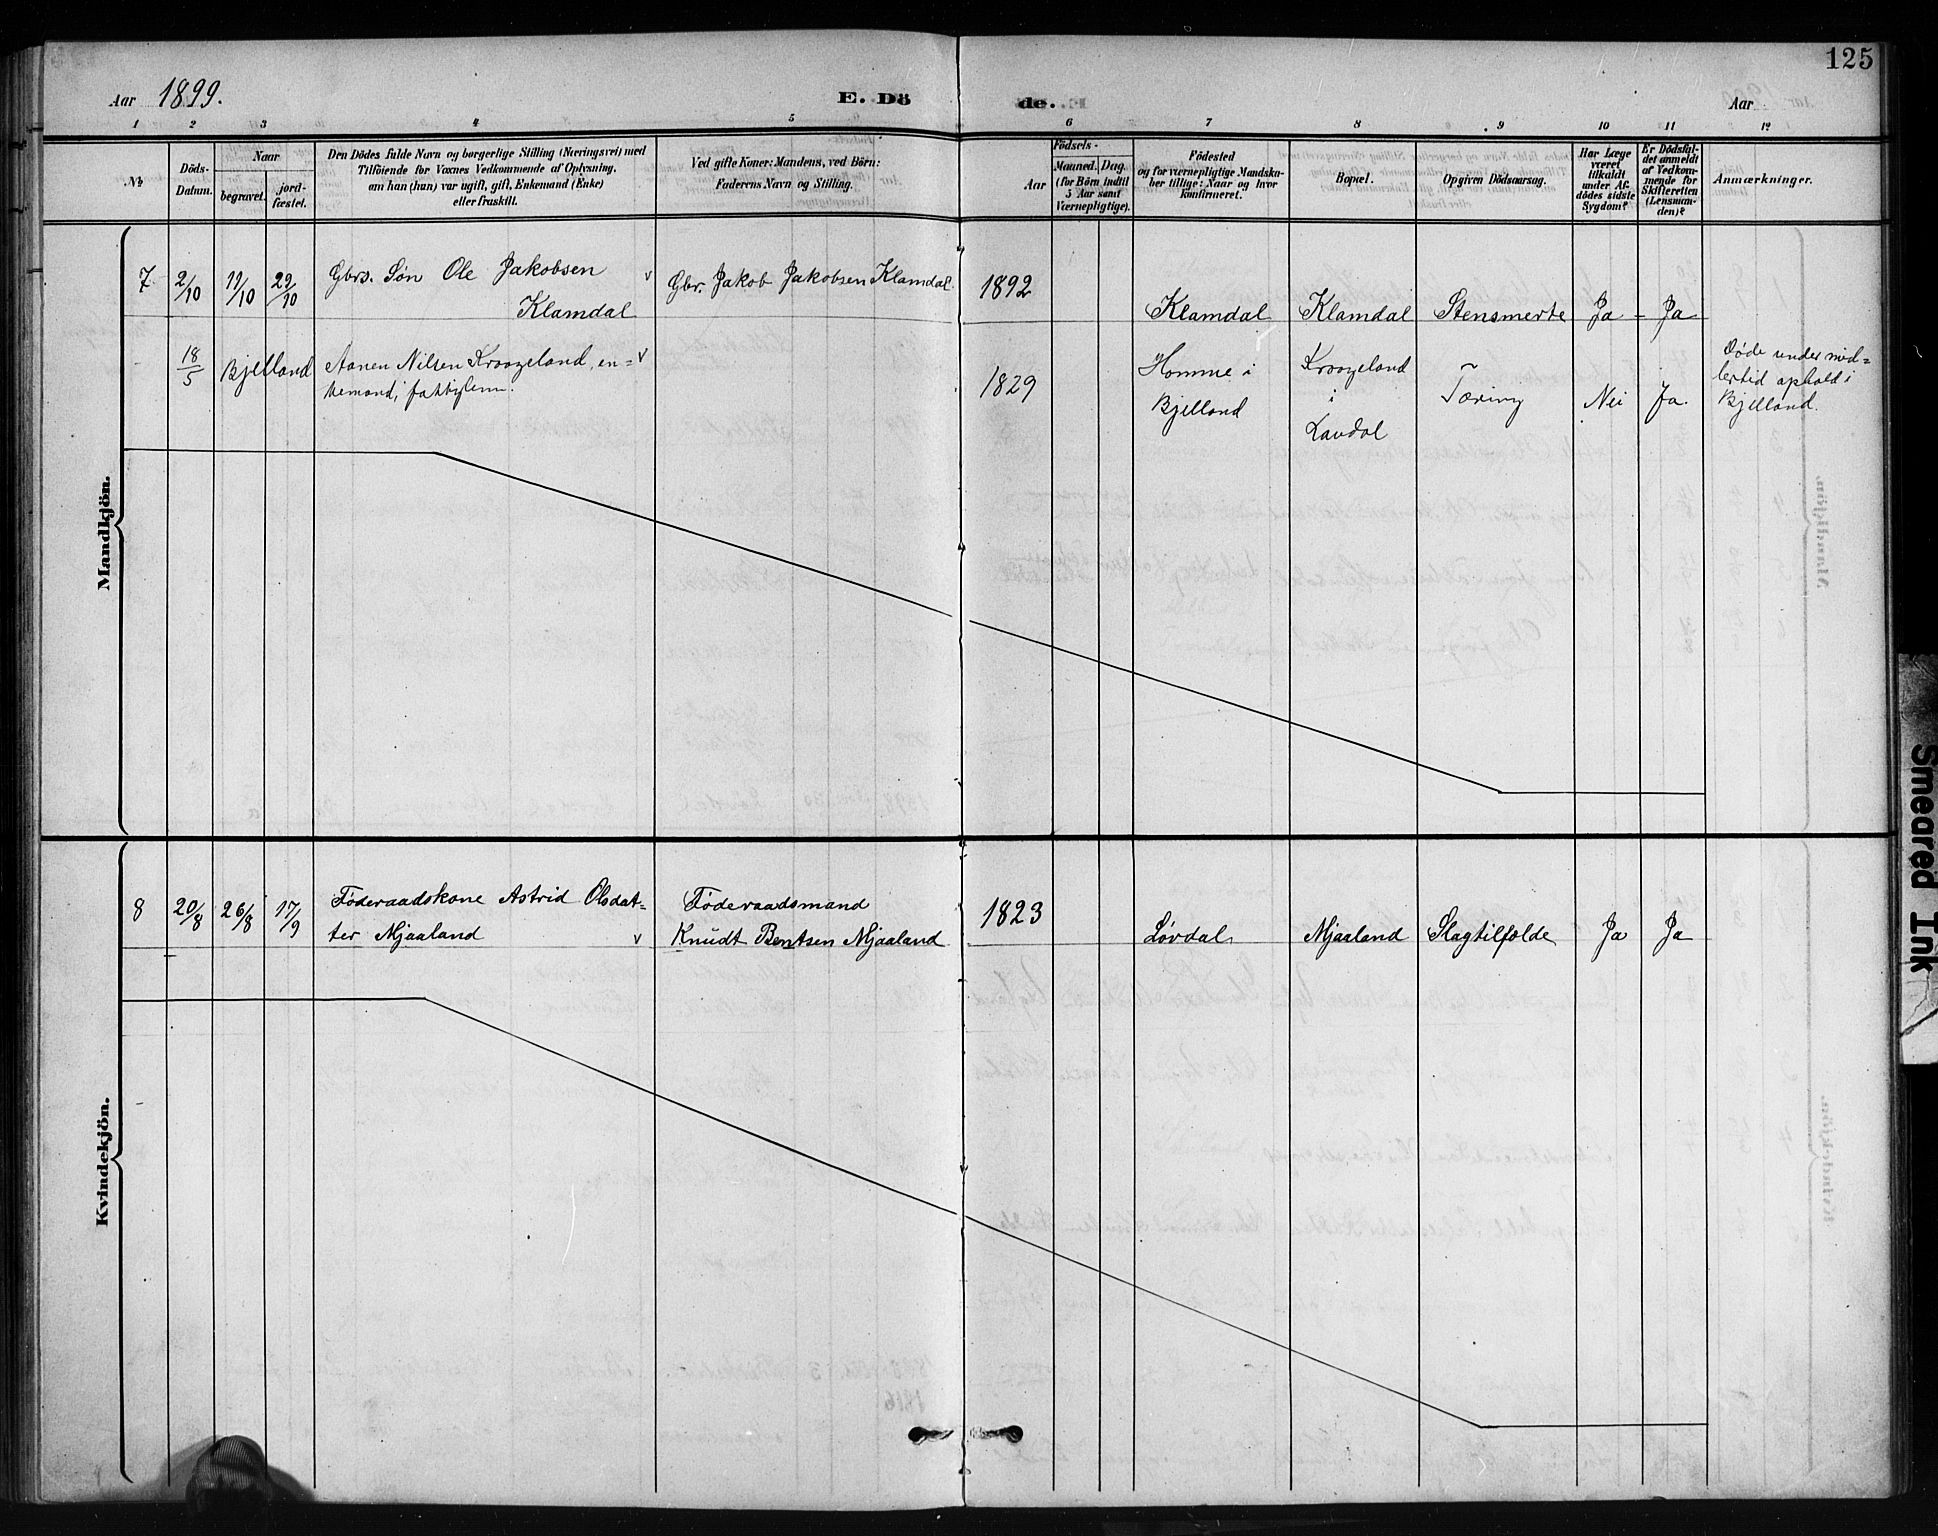 125
Aar 1899.
E. Dö
de.
Aar
1 2 3 4 5 6 7 8 9 10 11 12
№
Döds-
Datum.
Naar
begravet.
jord-
fæstet.
Den Dödes fulde Navn og borgerlige Stilling (Næringsvei) med
Tilföiende for Voxnes Vedkommende af Oplysning,
om han (hun) var ugift, gift, Enkemand (Enke)
eller fraskilt.
Ved gifte Koner: Mandens, ved Börn:
Faderens Navn og Stilling.
Födsels-
Aar
Maaned.
Dag.
(for Börn indtil
5 Aar samt
Værnepligtige).
Födested
og for værnepligtige Mandska-
ber tillige: Naar og hvor
konfirmeret.
Bopæl.
Opgiven Dödsaarsag.
Har Læge
været
tilkaldt
under Af-
dödes sidste
Sygdom?
Er Dödsfal-
det anmeldt
af Vedkom-
mende for
Skifteretten
(Lensman-
den)?
Anmærkninger.
Mandkjön.
7 2/10 19/10 29/10 Gbrs. Søn Ole Jakobsen v
Klamdal
Gbr. Jakob Jakobsen Klamdal.
1892
Klamdal Klamdal Stensmerte Ja - Ja
18/5 Bjelland Aanen Nilsen Kraageland, en- v
kemand,
1829
Homme i
Bjelland
Kraageland
i
Laudal
Tæring
Nei Ja.
Døde under mid-
lertid ophold i
Bjelland.
Kvindekjön.
8 20/8 26/8 17/9 Føderaadskone Astrid Olsdat-
ter Mjaaland v
Føderaadsmand
Knudt Bentsen Mjaaland
1823
Løvdal Mjaaland Slagtilfælde Ja Ja
Smeared Ink